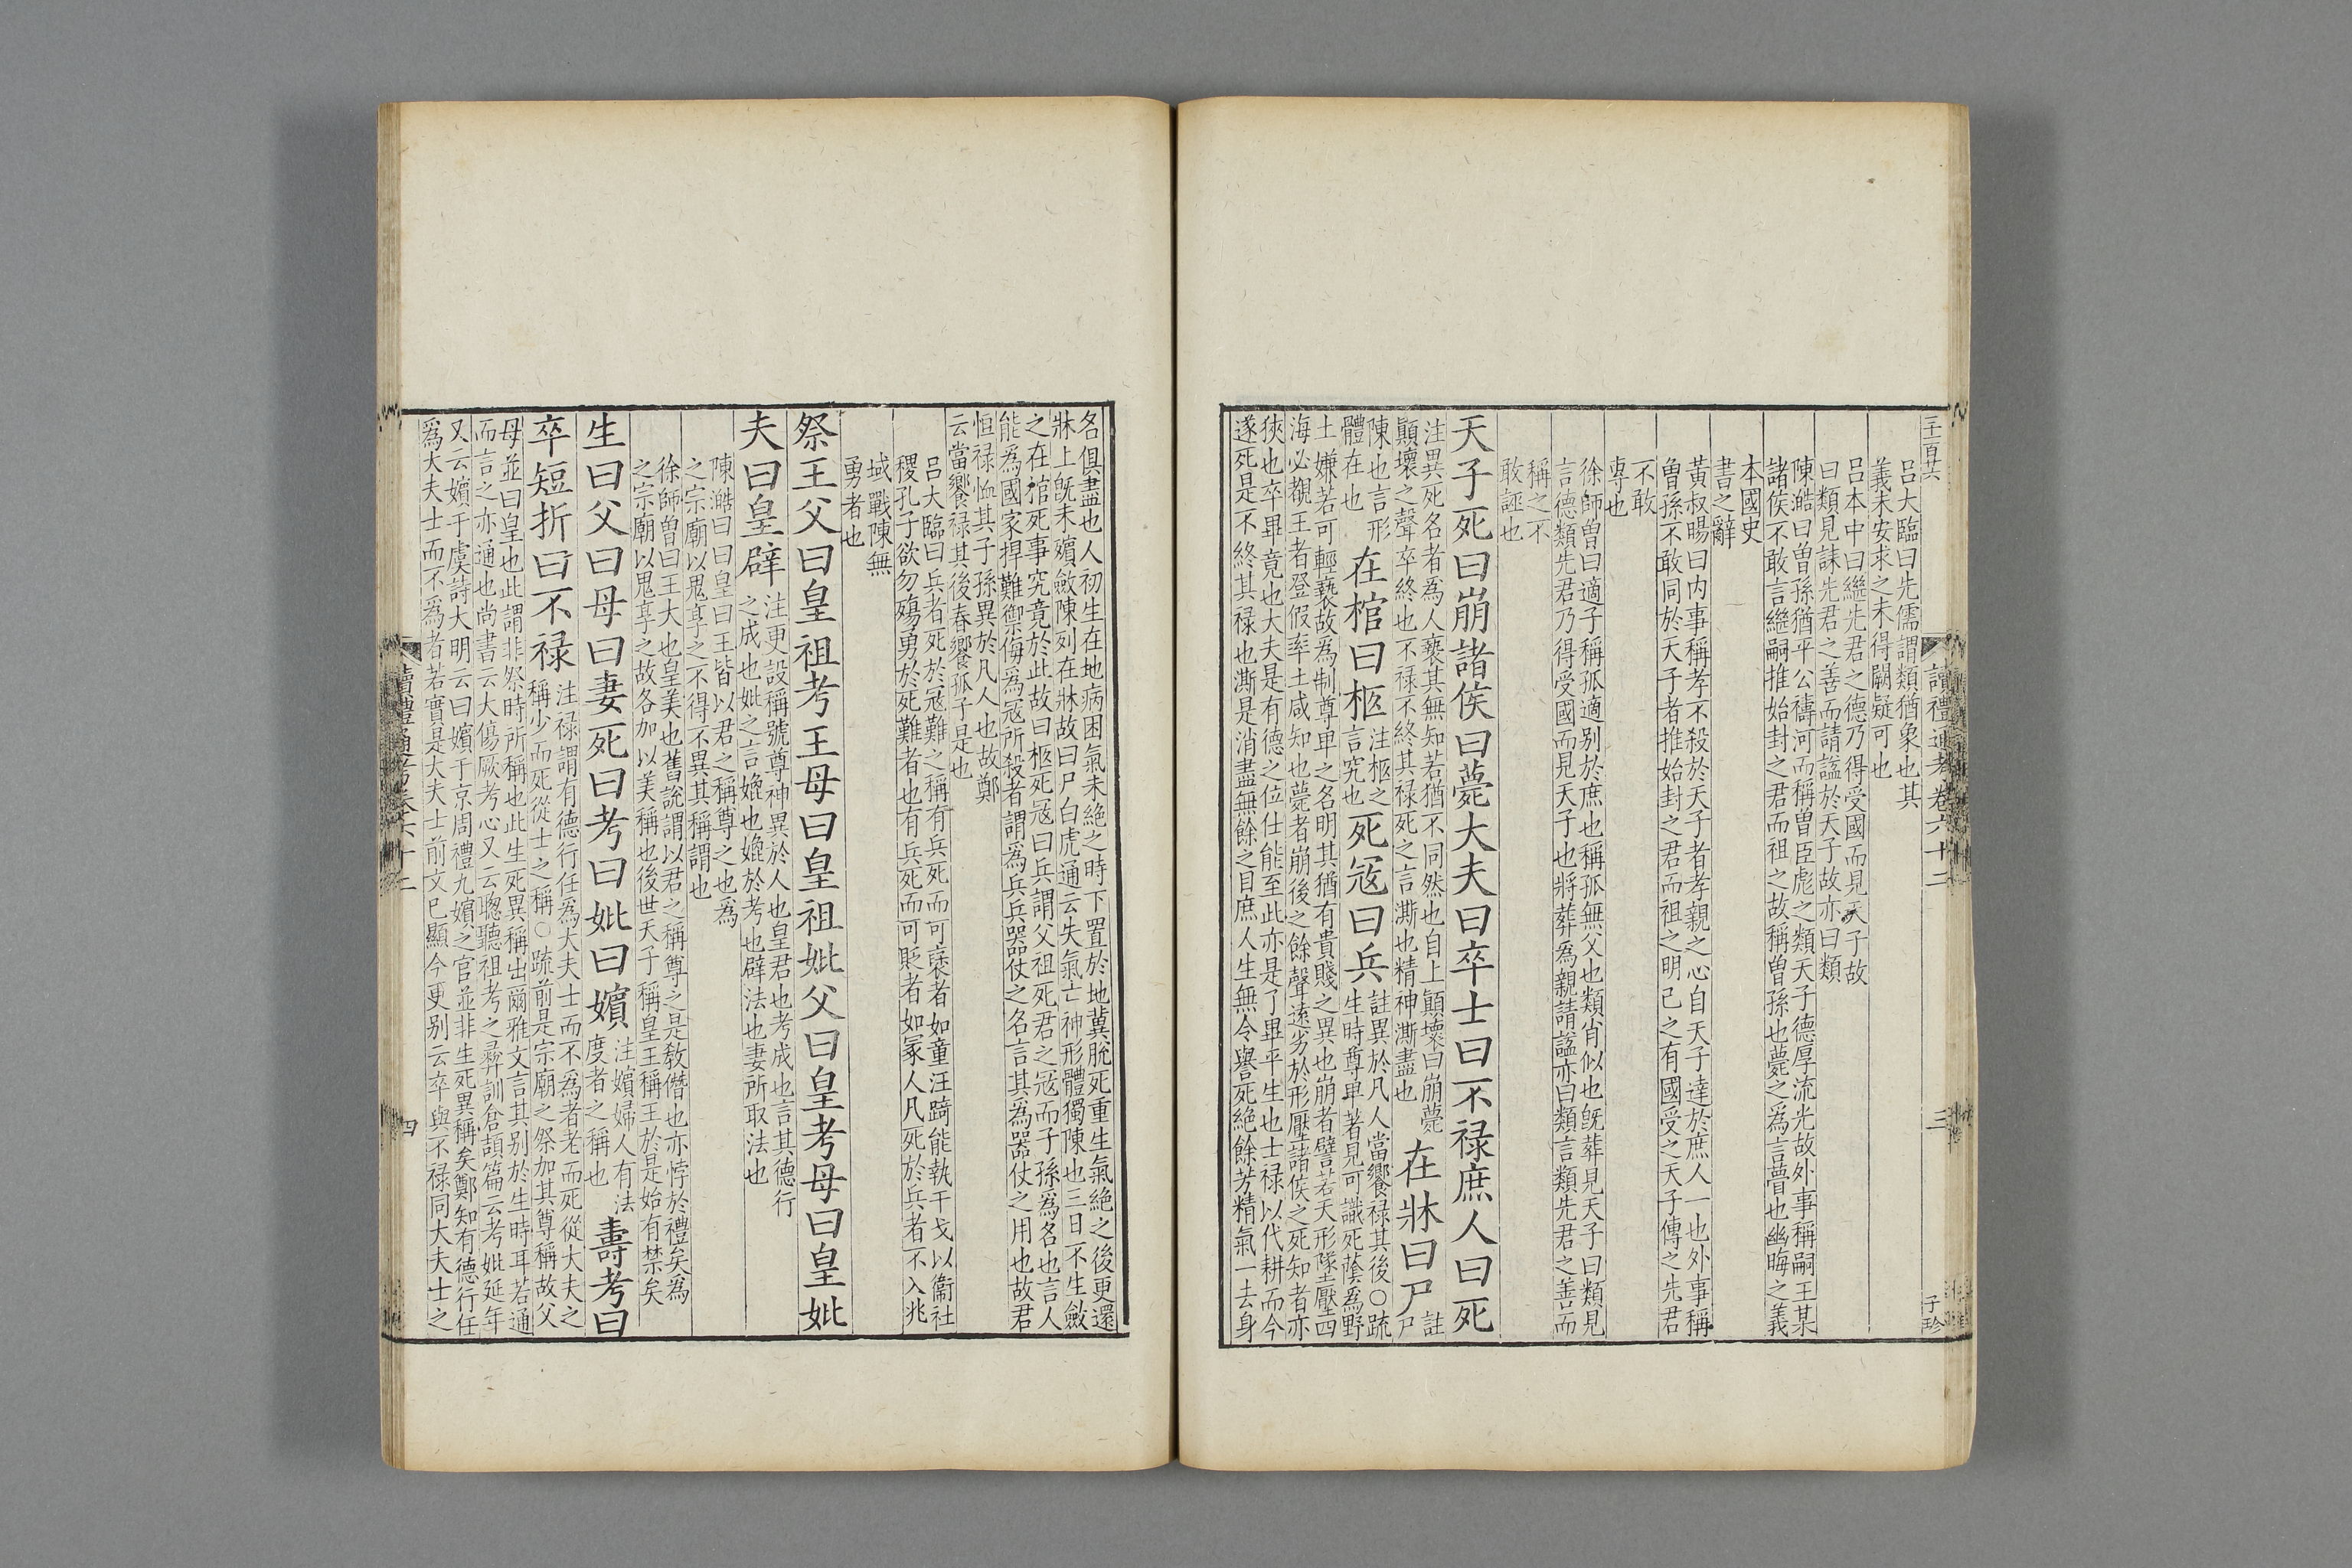 二千百廿六
讀禮通考卷六十二
三
子珍
呂大臨曰先儒謂類猶象也其
義未安求之未得闕疑可也
呂本中曰繼先君之德乃得受國而見天子故
曰類見誄先君之善而請諡於天子故亦曰類
陳澔曰曾孫猶平公禱河而稱曾臣彪之類天子德厚流光故外事稱嗣王某
諸侯不敢言繼嗣推始封之君而祖之故稱曾孫也薨之為言瞢也幽晦之義
本國史
書之辭
黃叔暘曰內事稱孝不殺於天子者孝親之心自天子達於庶人一也外事稱
曾孫不敢同於天子者推始封之君而祖之明己之有國受之天子傳之先君
不敢
專也
徐師曾曰適子稱孤適別於庶也稱孤無父也類肖似也旣葬見天子曰類見
言德類先君乃得受國而見天子也將葬為親請諡亦曰類言類先君之善而
稱之不
敢誣也
天子死曰崩諸侯曰薨大夫曰卒士曰不禄庶人曰死
注異死名者為人褻其無知若猶不同然也自上顚壞曰崩薨
顚壞之聲卒終也不禄不終其禄死之言澌也精神澌盡也
在牀曰尸
註尸
陳也言形
體在也
在棺曰柩
注柩之
言究也
死寇曰兵
註異於凡人當饗禄其後○疏
生時尊卑著見可識死蔭為野
土嫌若可輕褻故為制尊卑之名明其猶有貴賤之異也崩者譬若天形墜壓四
海必覩王者登假率土咸知也薨者崩後之餘聲遠劣於形壓諸侯之死知者亦
狹也卒畢竟也大夫是有德之位仕能至此亦是了畢平生也士禄以代耕而今
遂死是不終其禄也澌是消盡無餘之目庶人生無令譽死絕餘芳精氣一去身
名俱盡也人初生在地病困氣未絕之時下置於地冀脫死重生氣絕之後更還
牀上旣未殯斂陳列在牀故曰尸白虎通云失氣亡神形體獨陳也三日不生斂
之在棺死事究竟於此故曰柩死寇曰兵謂父祖死君之寇而子孫為名也言人
能為國家捍難禦侮為寇所殺者謂為兵兵器仗之名言其為器仗之用也故君
恒禄恤其子孫異於凡人也故鄭
云當饗禄其後春饗孤子是也
呂大臨曰兵者死於寇難之稱有兵死而可襃者如童汪踦能執干戈以衞社
稷孔子欲勿殤勇於死難者也有兵死而可貶者如冢人凡死於兵者不入兆
域戰陳無
勇者也
祭王父曰皇祖考王母曰皇祖妣父曰皇考母曰皇妣
夫曰皇辟
注更設稱號尊神異於人也皇君也考成也言其德行
之成也妣之言媲也媲於考也辟法也妻所取法也
陳澔曰曰皇曰王皆以君之稱尊之也為
之宗廟以鬼享之不得不異其稱謂也
徐師曾曰王大也皇美也舊說謂以君之稱尊之是教僭也亦悖於禮矣為
之宗廟以鬼享之故各加以美稱也後世天子稱皇王稱王於是始有禁矣
生曰父曰母曰妻死曰考曰妣曰嬪
注嬪婦人有法
度者之稱也
壽考曰
卒短折曰不禄
注禄謂有德行任為大夫士而不為者老而死從大夫之
稱少而死從士之稱○疏前是宗廟之祭加其尊稱故父
母並曰皇也此謂非祭時所稱也此生死異稱出爾雅文言其別於生時耳若通
而言之亦通也尚書云大傷厥考心又云聰聽祖考之彝訓倉頡篇云考妣延年
又云嬪于虞詩大明云曰嬪于京周禮九嬪之官並非生死異稱矣鄭知有德行任
為大夫士而不為者若實是大夫士前文已顯今更別云卒與不禄同大夫士之
讀禮通考卷六十二
四